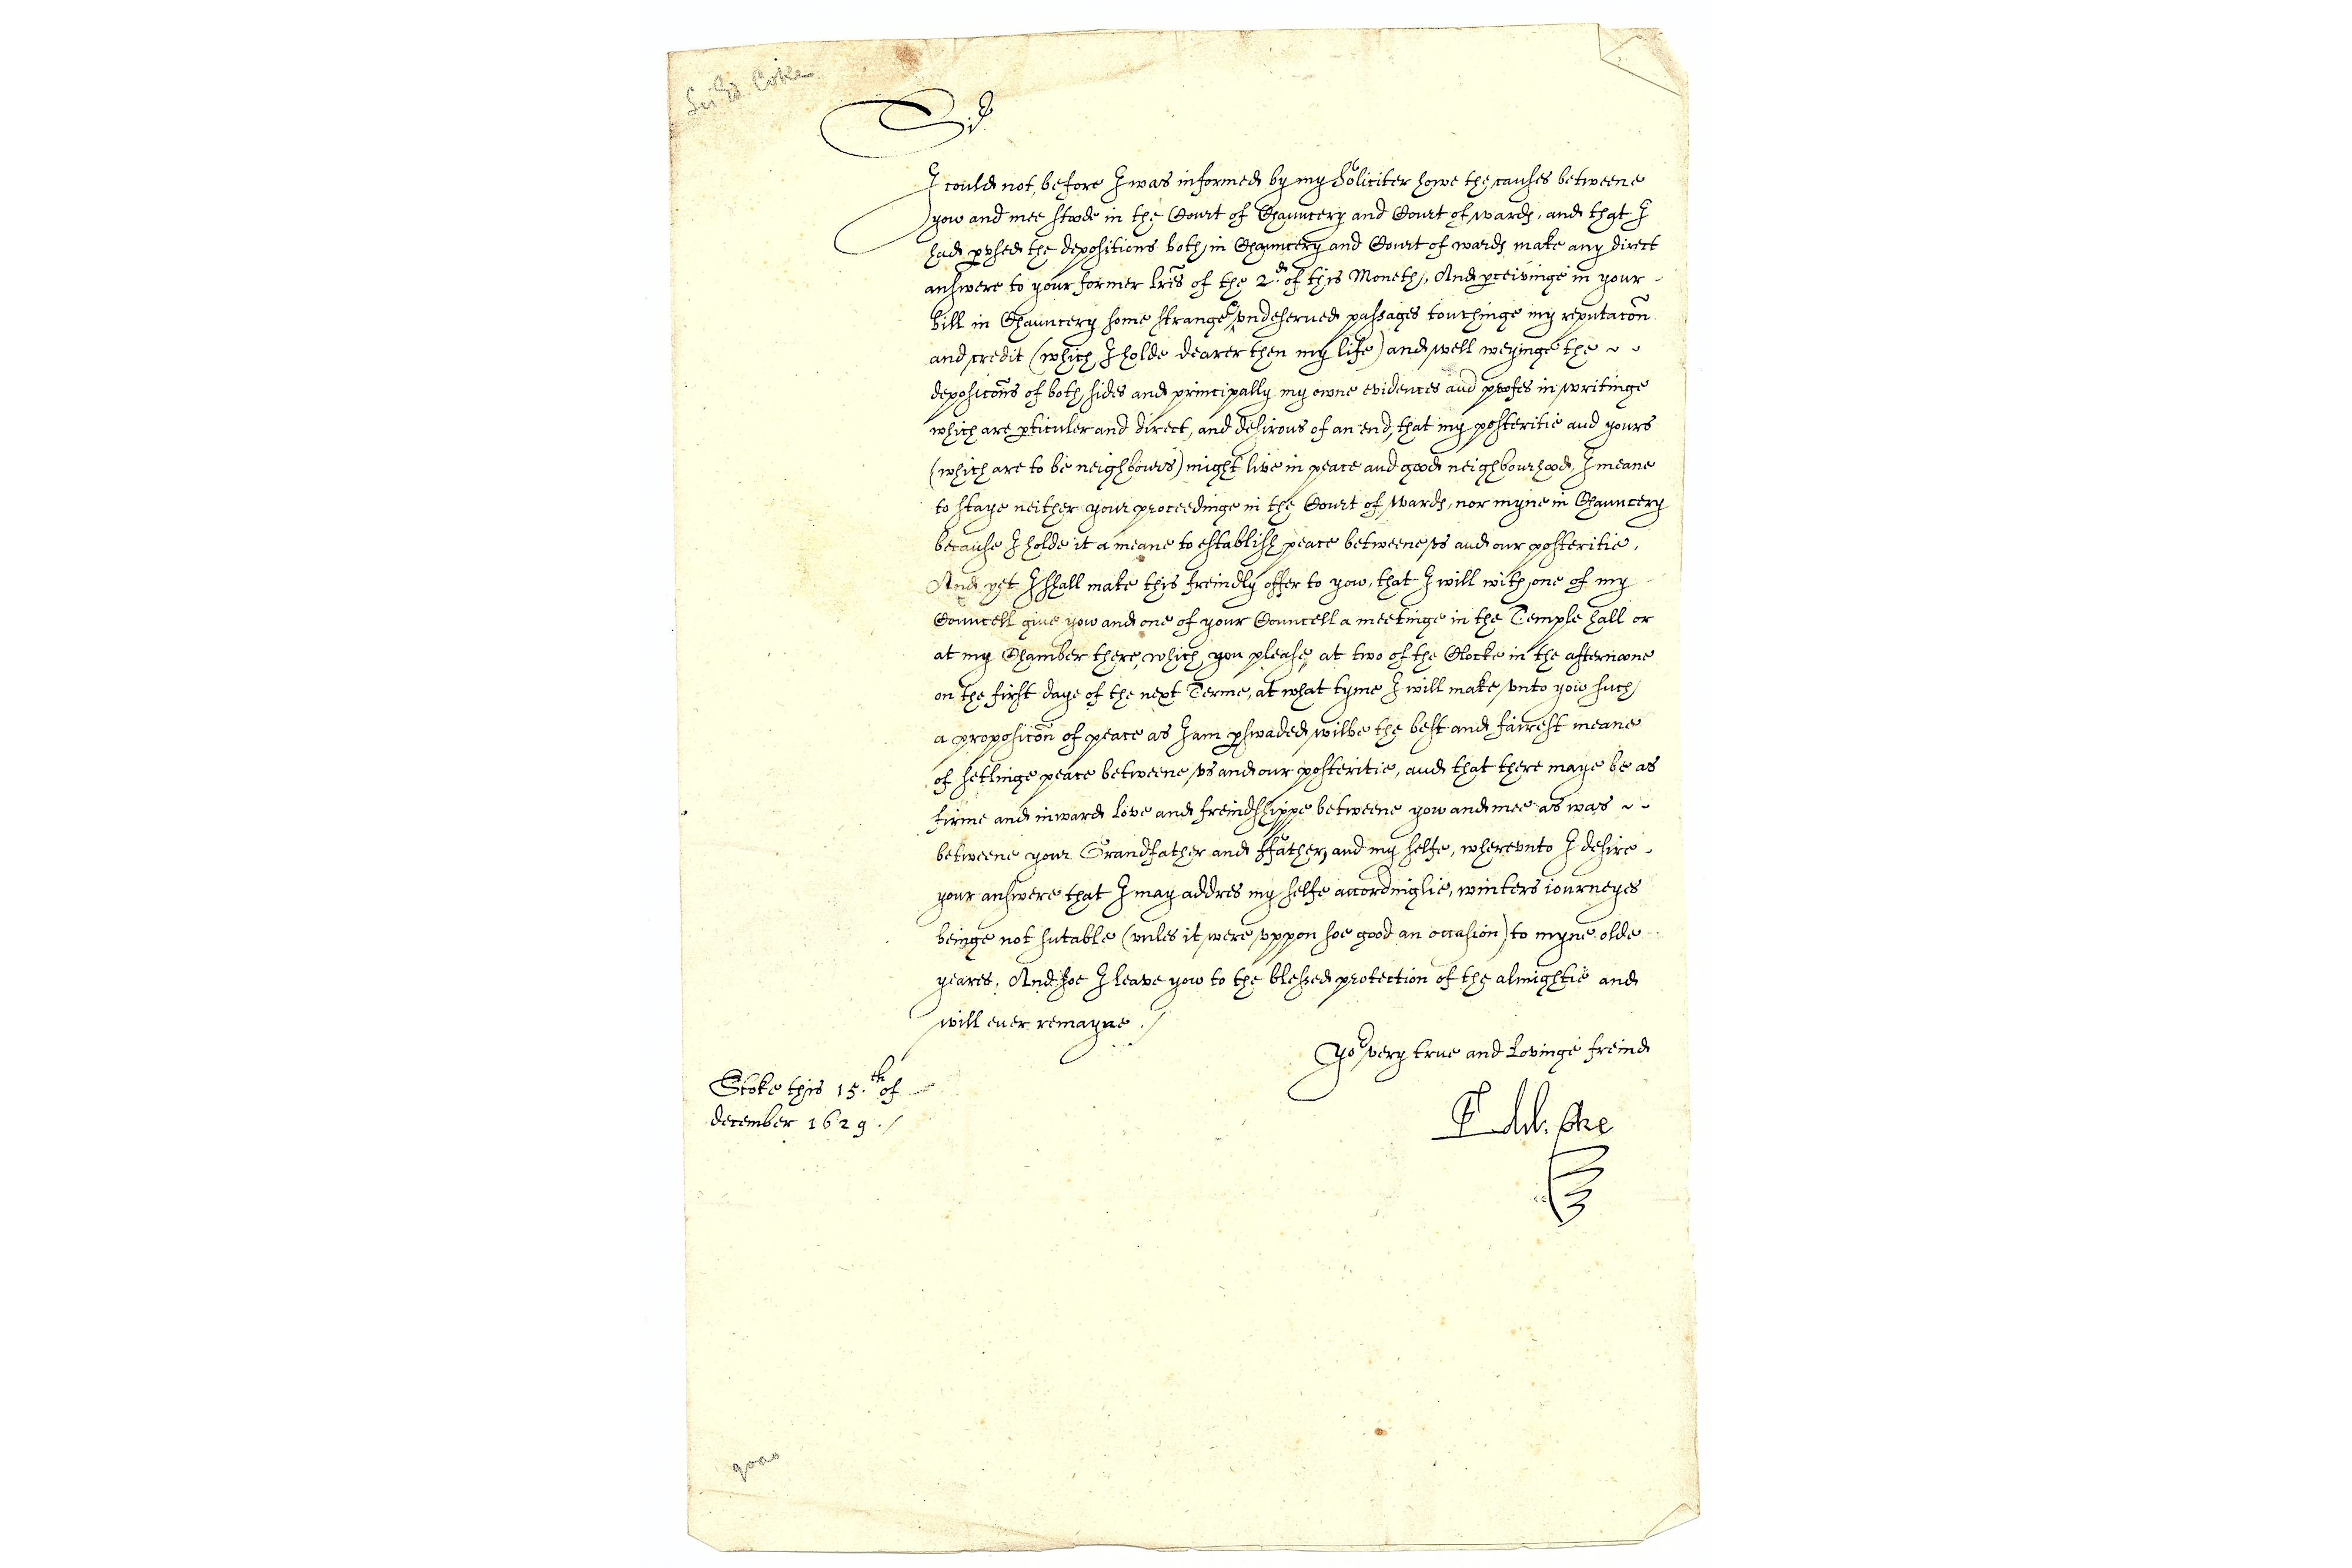 Sir Ed. Coke
Sr
I could not, before I was informed by my Soliciter howe the causes betweene
yow and mee stode in the Court of Chauncery and Court of wards, and that I
had pused the depositions both in Chauncery and Court of wards make any direct
answere to your former lres of the 2d. of this Moneth, And pceivinge in your
bill in Chauncery some strange vndeserved passages touchinge my reputacon
and credit (which I holde dearer then my life) and well weyinge the
deposicons of both sides and principally my owne evidences and profes in writinge
which are pticuler and direct, and desirous of an end, that my posteritie and yours
(which are to be neighbours) might live in peace and good neighbourhood, I meane
to staye neither your proceedinge in the Court of wards, nor myne in Chauncery
because I holde it a meane to establish peace betweene vs and our posteritie.
And yet I shall make this freindly offer to yow, that I will with one of my
Councell giue yow and one of your Councell a meetinge in the Temple hall or
at my Chamber there, which you please, at two of the Clocke in the afternoone
on the first daye of the next Terme, at what tyme I will make vnto yow such
a proposicon of peace as I am pswaded wilbe the best and fairest meane
of setlinge peace betweene vs and our posteritie, and that there maye be as
firme and inward love and freindshippe betweene yow and mee as was
betweene your Grandfather and ffather, and my selfe, wherevnto I desire
your answere that I may addres my selfe accordinglie, winters iourneyes
beinge not sutable (vnles it were vppon soe good an occasion) to myne olde
yeares. And soe I leave yow to the blessed protection of the almightie and
will euer remayne ./
Yor very true and Lovinge freind
Edw. Coke
Stoke this 15.th of
december 1629 ./